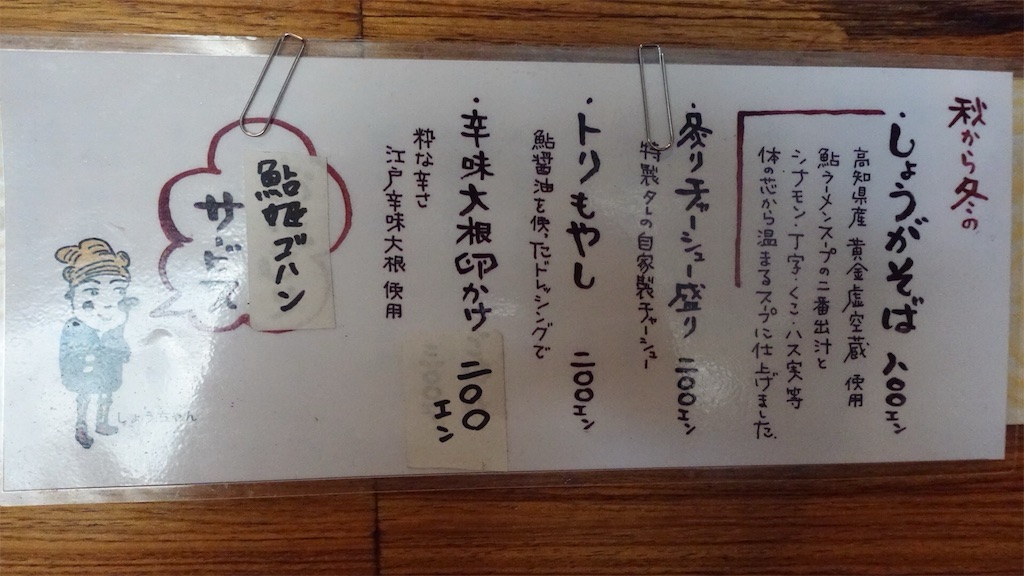 秋から冬の
・しょうがそば 八〇〇エン
高知県産 黄金虚空蔵 使用
鮎ラーメンスープの二番出汁と
シナモン・丁字・くこ・ハス実等
体の芯から温まるスープに仕上げました。
・炙りチャーシュー盛り 二〇〇エン
特製タレの自家製チャーシュー
・トリもやし 二〇〇エン
鮎醤油を使ったドレッシングで
・辛味大根卵かけ 二〇〇
エン
粋な辛さ
江戸辛味大根 使用
鮎姫ゴハン
サービス
しょうちゃん